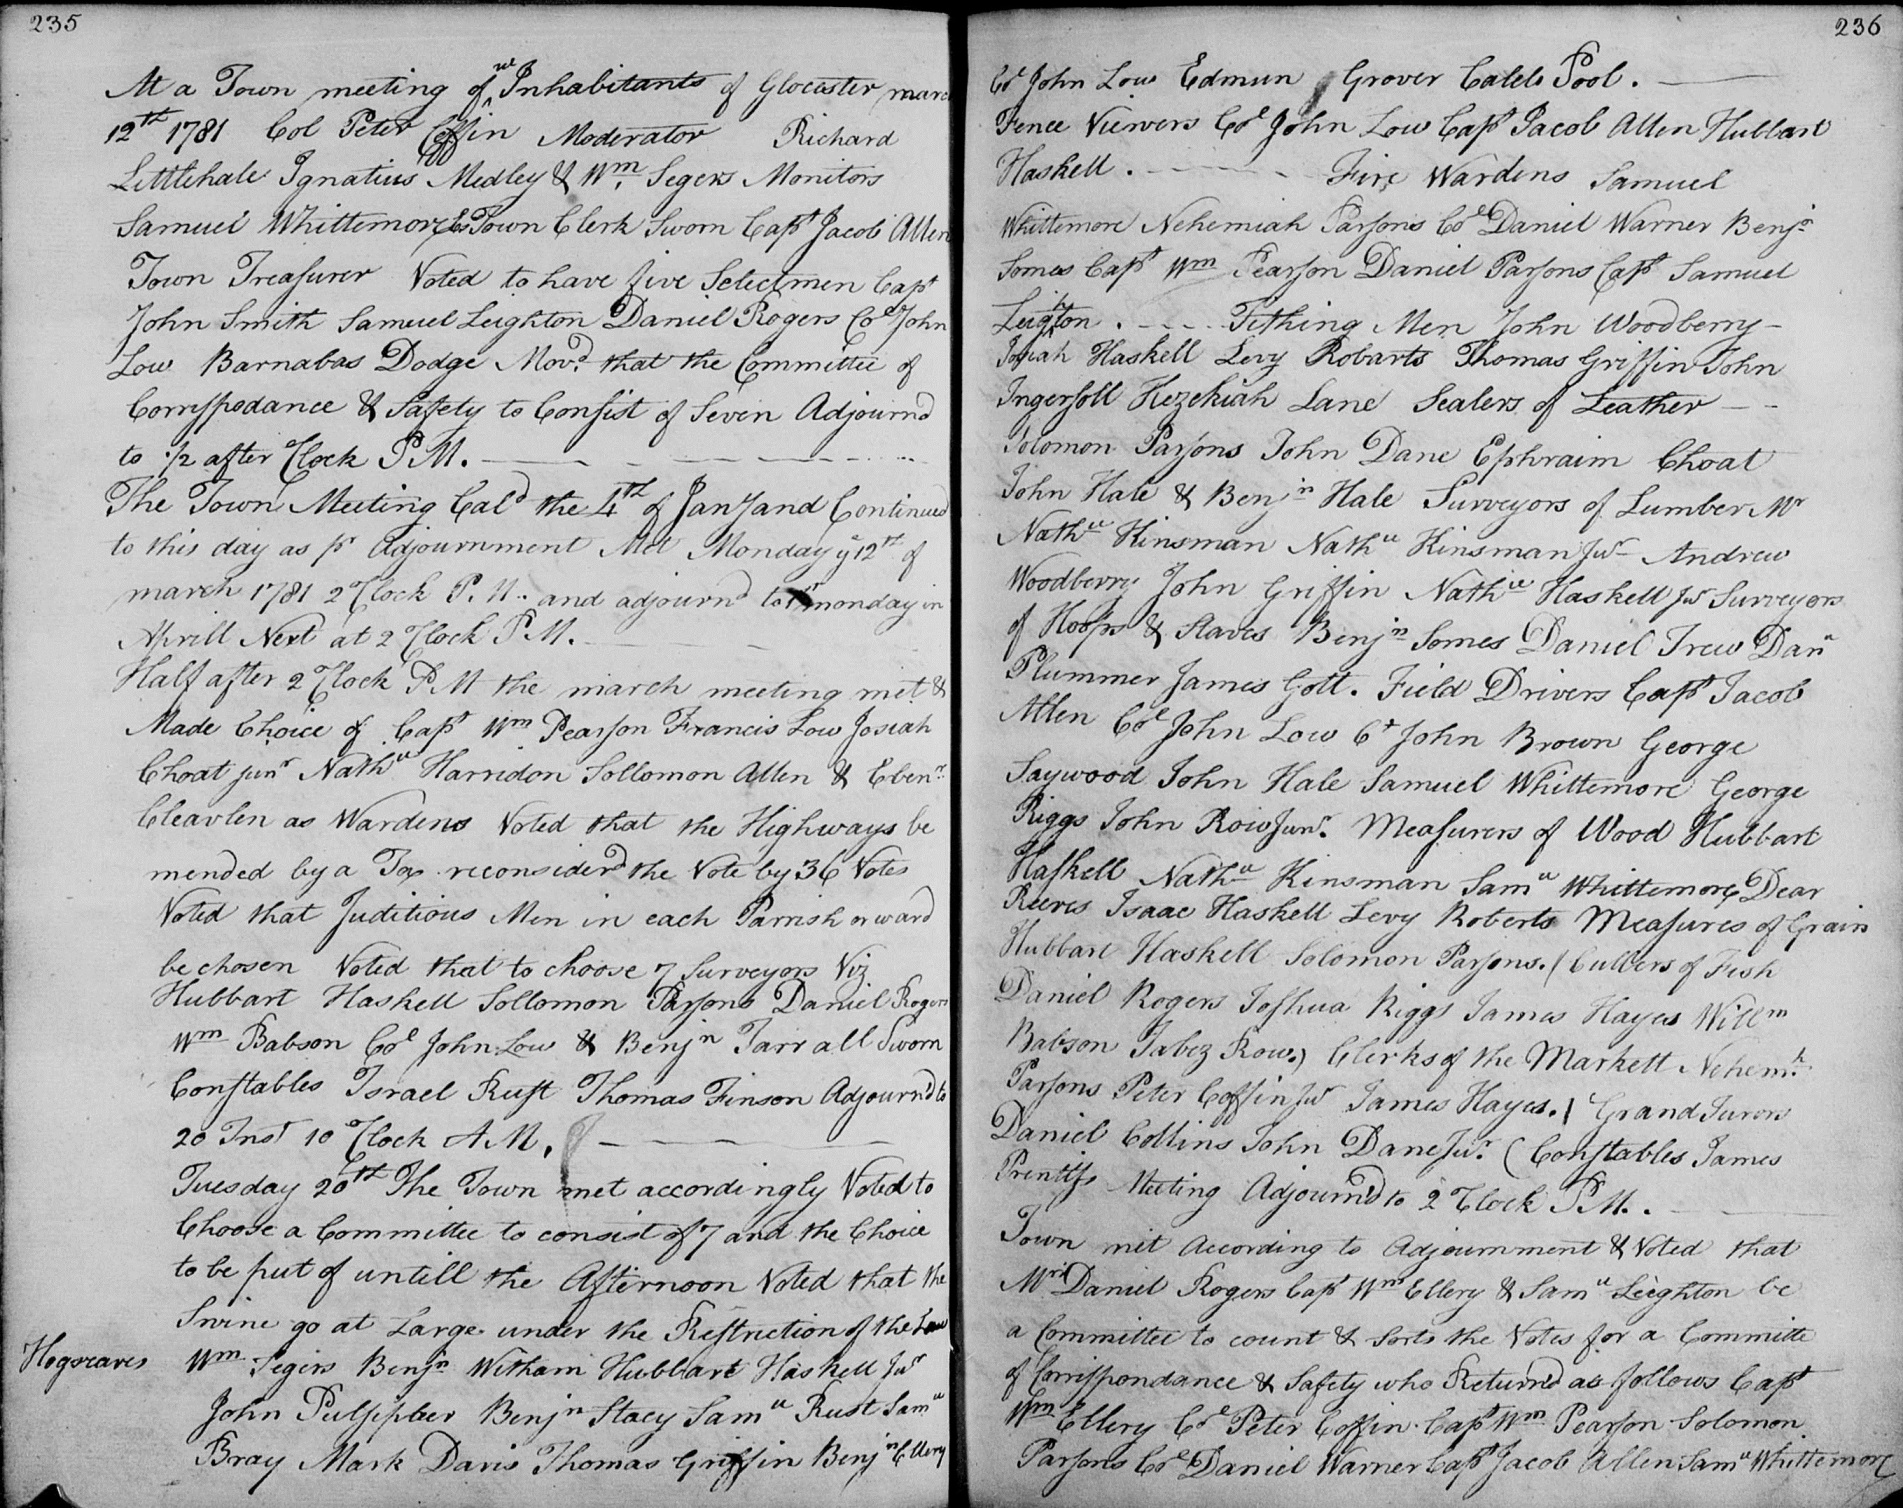 235
At a Town meeting of ye Inhabitants of Glocester march
12th 1781 Col Peter Coffin Moderator Richard
Littlehale Ignatius Medley & Wm Segers Monitors
Samuel Whittemore Town Clerk Sworn Capt Jacob Allen
Town Treasurer Voted to have five Selectmen Capt
John Smith Samuel Leighton Daniel Rogers Col John
Low Barnabas Dodge Movd that the Committee of
Corrispodance & Safety to Consist of Seven Adjournd
to 1/2 after Clock P.M.
The Town Meeting Cald the 4th of Jany and Continued
to this day as pr Adjournment Met Monday ye 12th of
march 1781 2 Clock P.M. and adjournd to monday in
Aprill Next at 2 Clock P.M.
Half after 2 Clock P M the march meeting met &
Made Choice of Capt Wm Pearson Francis Low Josiah
Choat junr Nathll Harridon Sollomon Allen & Ebenr
Cleavlen as Wardens Voted that the Highways be
mended by a Tax reconsiderd the Vote by 36 Votes
Voted that Juditious Men in each Parrish or ward
be chosen Voted that to choose 7 Surveyors Viz
Hubbart Haskell Sollomon Parsons Daniel Rogers
Wm Babson Col John Low & Benjn Tarr all Sworn
Constables Israel Rust Thomas Finson Adjournd to
20 Inst 10 Clock A.M.
Tuesday 20th The Town met accordingly Voted to
Choose a Committee to consist of 7 and the Choice
to be put of untill the Afternoon Voted that the
Swine go at Large under the Restriction of the Law
Hogreaves Wm Segers Benjn Witham Hubbart Haskell Jur
John Pulsipher Benjn Stacy Samll Rust Samll
Bray Mark Davis Thomas Griffin Benjn Ellery
236
Col John Low Edmun Grover Caleb Pool.
Fence Viewers Col John Low Capt Jacob Allen Hubbart
Haskell. Fire Wardens Samuel
Whittemore Nehemiah Parsons Col Daniel Warner Benjn
Somes Capt Wm Pearson Daniel Parsons Capt Samuel
Leighton. Tithing Men John Woodberry
Josiah Haskell Levy Robarts Thomas Griffin John
Ingersoll Hezekiah Lane Sealers of Leather
Solomon Parsons John Dane Ephraim Choat
John Hale & Benjn Hale Surveyors of Lumber Mr
Nathll Kinsman Nathll Kinsman Jur Andrew
Woodberry John Griffin Nathll Haskell Jur Surveyors
of Hoops & Staves Benjn Somes Daniel Trew Danll
Plummer James Gott. Field Drivers Capt Jacob
Allen Col John Low Ct John Brown George
Saywood John Hale Samuel Whittemore George
Riggs John Row Junr. Measurers of Wood Hubbart
Haskell Nathll Kinsman Samll Whittemore Dear
Reeves Isaac Haskell Levy Roberts Measures of Grain
Hubbart Haskell Solomon Parsons. Cullers of Fish
Daniel Rogers Joshua Riggs James Hayes Willm
Babson Jabez Row. Clerks of the Markett Nehemh
Parsons Peter Coffin Jur James Hayes. Grand Jurors
Daniel Collins John Dane Jur. Constables James
Prentiss Meeting Adjournd to 2 Clock P.M.
Town met According to Adjournment & Voted that
Mrs Daniel Rogers Capt Wm Ellery & Samll Leighton be
a Committee to count & Sorte the Votes for a Committe
of Corrispondance & Safety who Returnd as follows Capt
Wm Ellery Col Peter Coffin Capt Wm Pearson Solomon
Parsons Col Daniel Warner Capt Jacob Allen Samll Whittemore